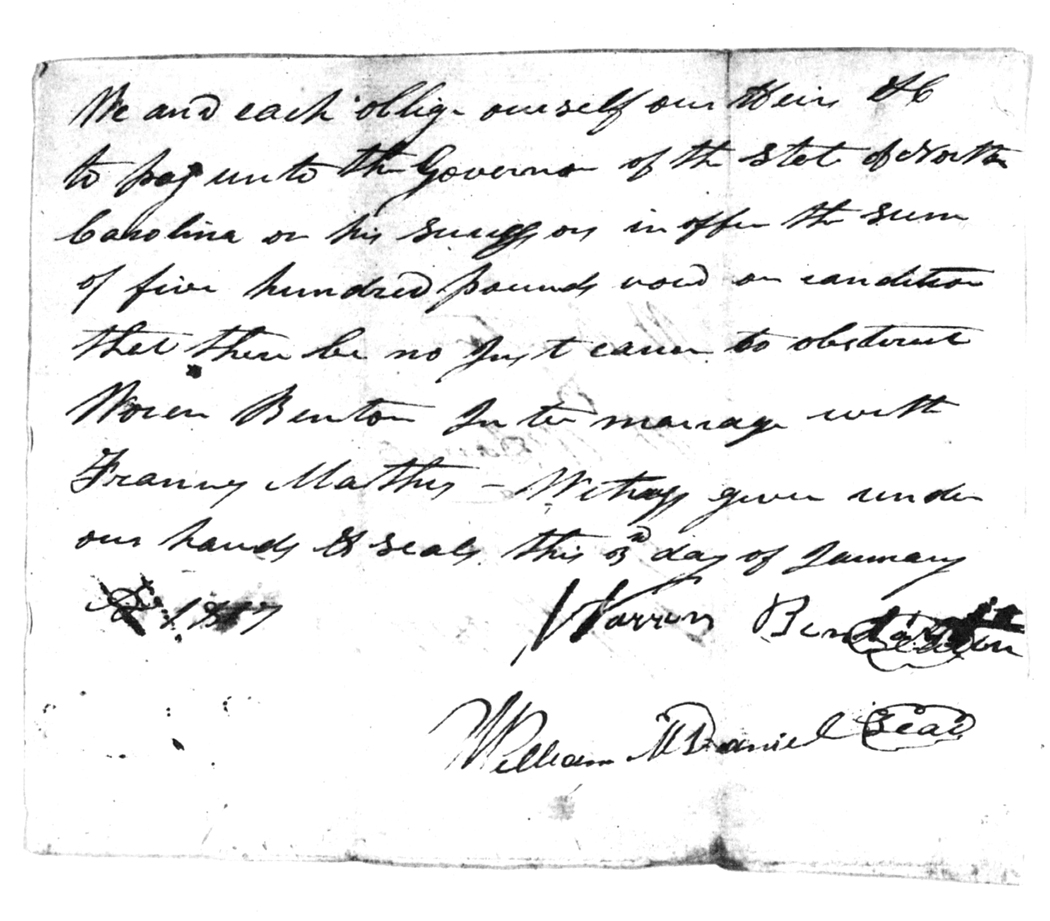 We and each oblige ourself our Heirs &C
to pay unto the Governor of the State of North
Carolina or his sucessors in offee the sum
of five hundred pounds void on condition
that there be no Just cause to obstruct
Woren Benton Inter marrage with
Franney Mathis - Witness given under
our hands & seals this 3rd day of January
Warren Benton Seal
William McDaniel Seal